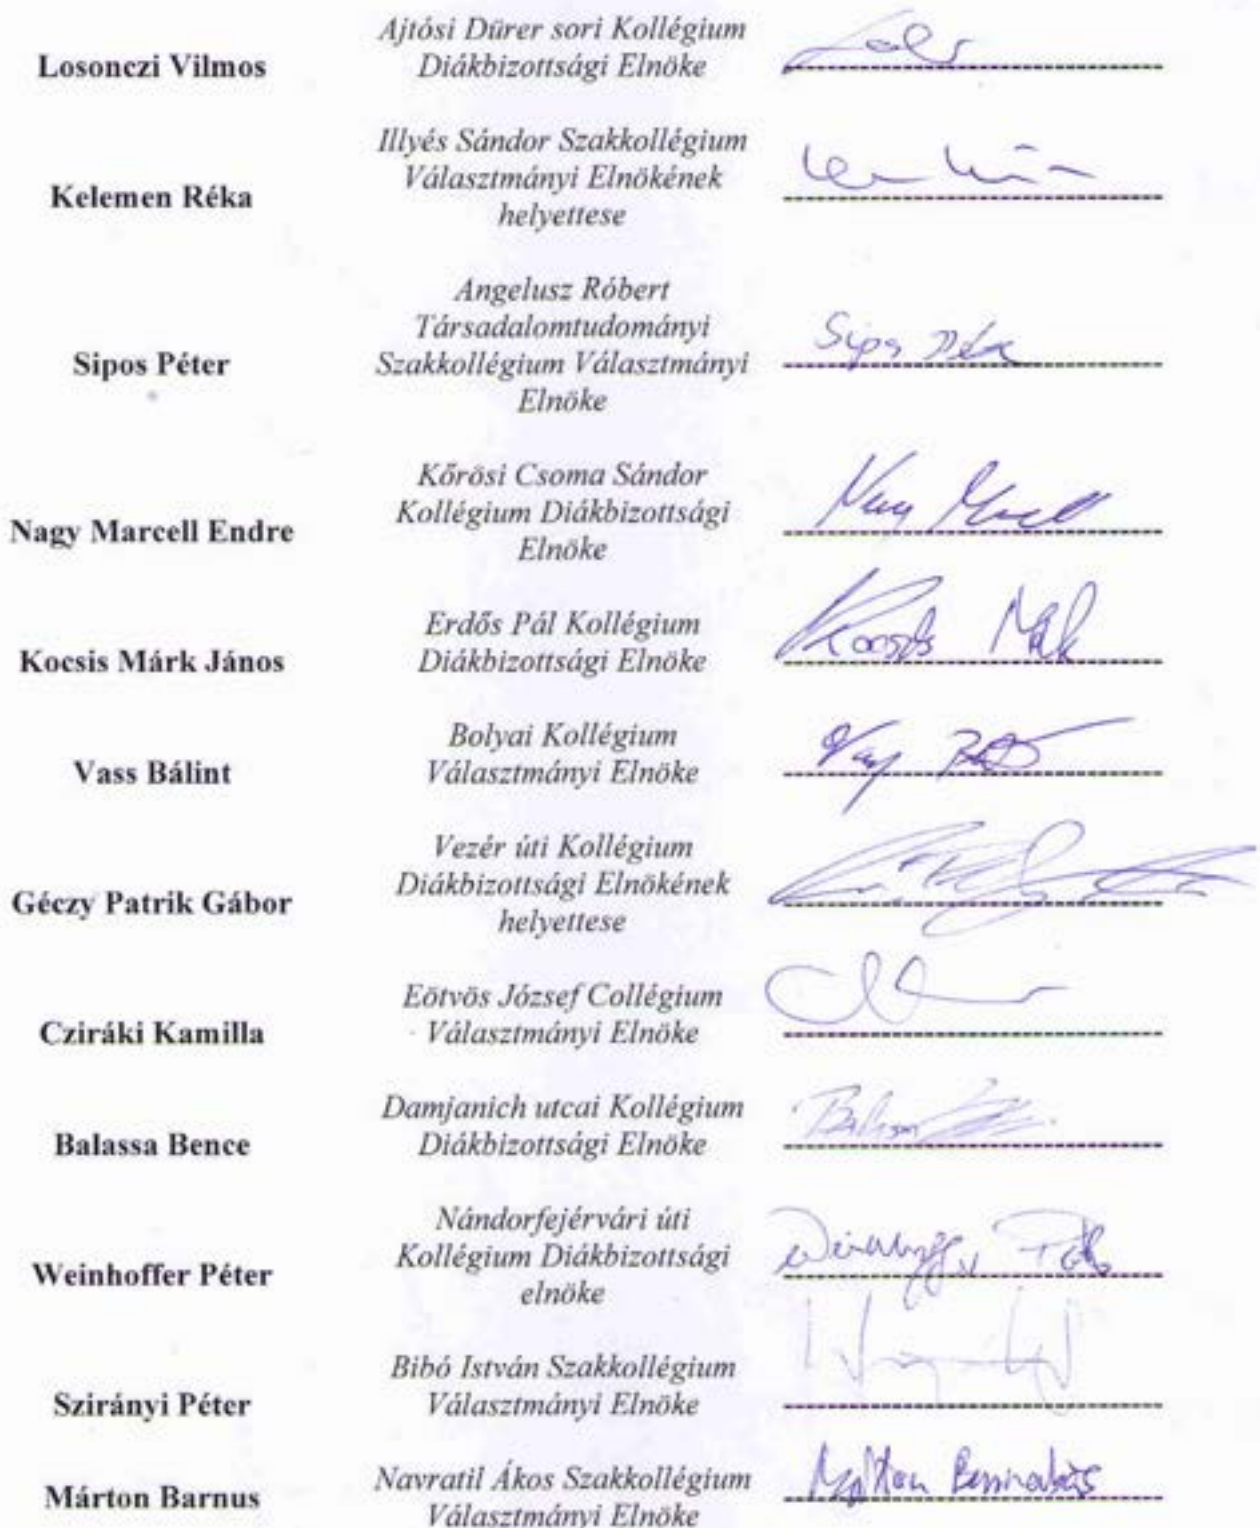 Losonczi Vilmos
Ajtósi Dürer sori Kollégium
Diákbizottsági Elnöke
Kelemen Réka
Illyés Sándor Szakkollégium
Választmányi Elnökének
helyettese
Sipos Péter
Angelusz Róbert
Társadalomtudományi
Szakkollégium Választmányi
Elnöke
Sipos Péter
Nagy Marcell Endre
Kőrösi Csoma Sándor
Kollégium Diákbizottsági
Elnöke
Nagy Marcell
Kocsis Márk János
Erdős Pál Kollégium
Diákbizottsági Elnöke
Kocsis Márk
Vass Bálint
Bolyai Kollégium
Választmányi Elnöke
Géczy Patrik Gábor
Vezér úti Kollégium
Diákbizottsági Elnökének
helyettese
Cziráki Kamilla
Eötvös József Collégium
Választmányi Elnöke
Balassa Bence
Damjanich utcai Kollégium
Diákbizottsági Elnöke
Weinhoffer Péter
Nándorfejérvári úti
Kollégium Diákbizottsági
elnöke
Szirányi Péter
Bibó István Szakkollégium
Választmányi Elnöke
Márton Barnus
Navratil Ákos Szakkollégium
Választmányi Elnöke